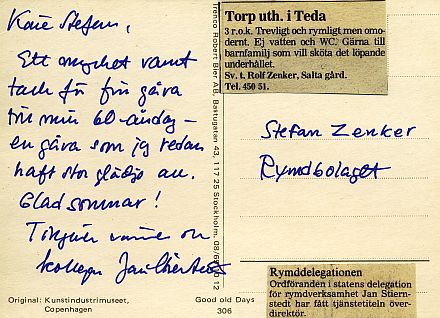 Käre Stefan,
Ett mycket varmt
tack för fin gåva
till min 60-årsdag –
en gåva som jag redan
haft stor glädje av.
Glad sommar!
Tillgivne vännen och
kollegan Jan Stiernstedt
Original: Kunstindustrimuseet,
Copenhagen
Good old Days
306
Trenco Robert Bier AB, Baktugatan 43, 117 25 Stockholm. 08/6 0 12
Torp uth. i Teda
3 r.o.k. Trevligt och rymligt men omo-
dernt. Ej vatten och WC. Gärna till
barnfamilj som vill sköta det löpande
underhållet.
Sv. t. Rolf Zenker, Salta gård.
Tel. 450 51.
Stefan Zenker
Rymdbolaget
Rymddelegationen
Ordföranden i statens delegation
för rymdverksamhet Jan Stiern-
stedt har fått tjänstetiteln över-
direktör.